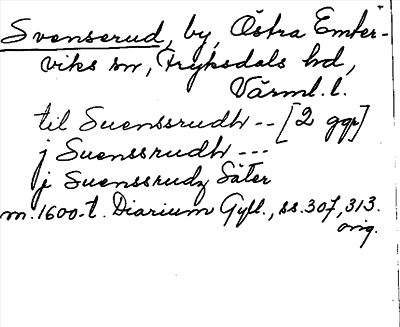 Svenserud, by, Östra Emter-
viks sn, Fryksdals hd,
Värml. l.
til Suenssrudh -- [2 ggr]
j Suenssrudh ---
j Suenssrudz Säter
m. 1600-t. Diarium Gyll., ss. 307, 313.
orig.